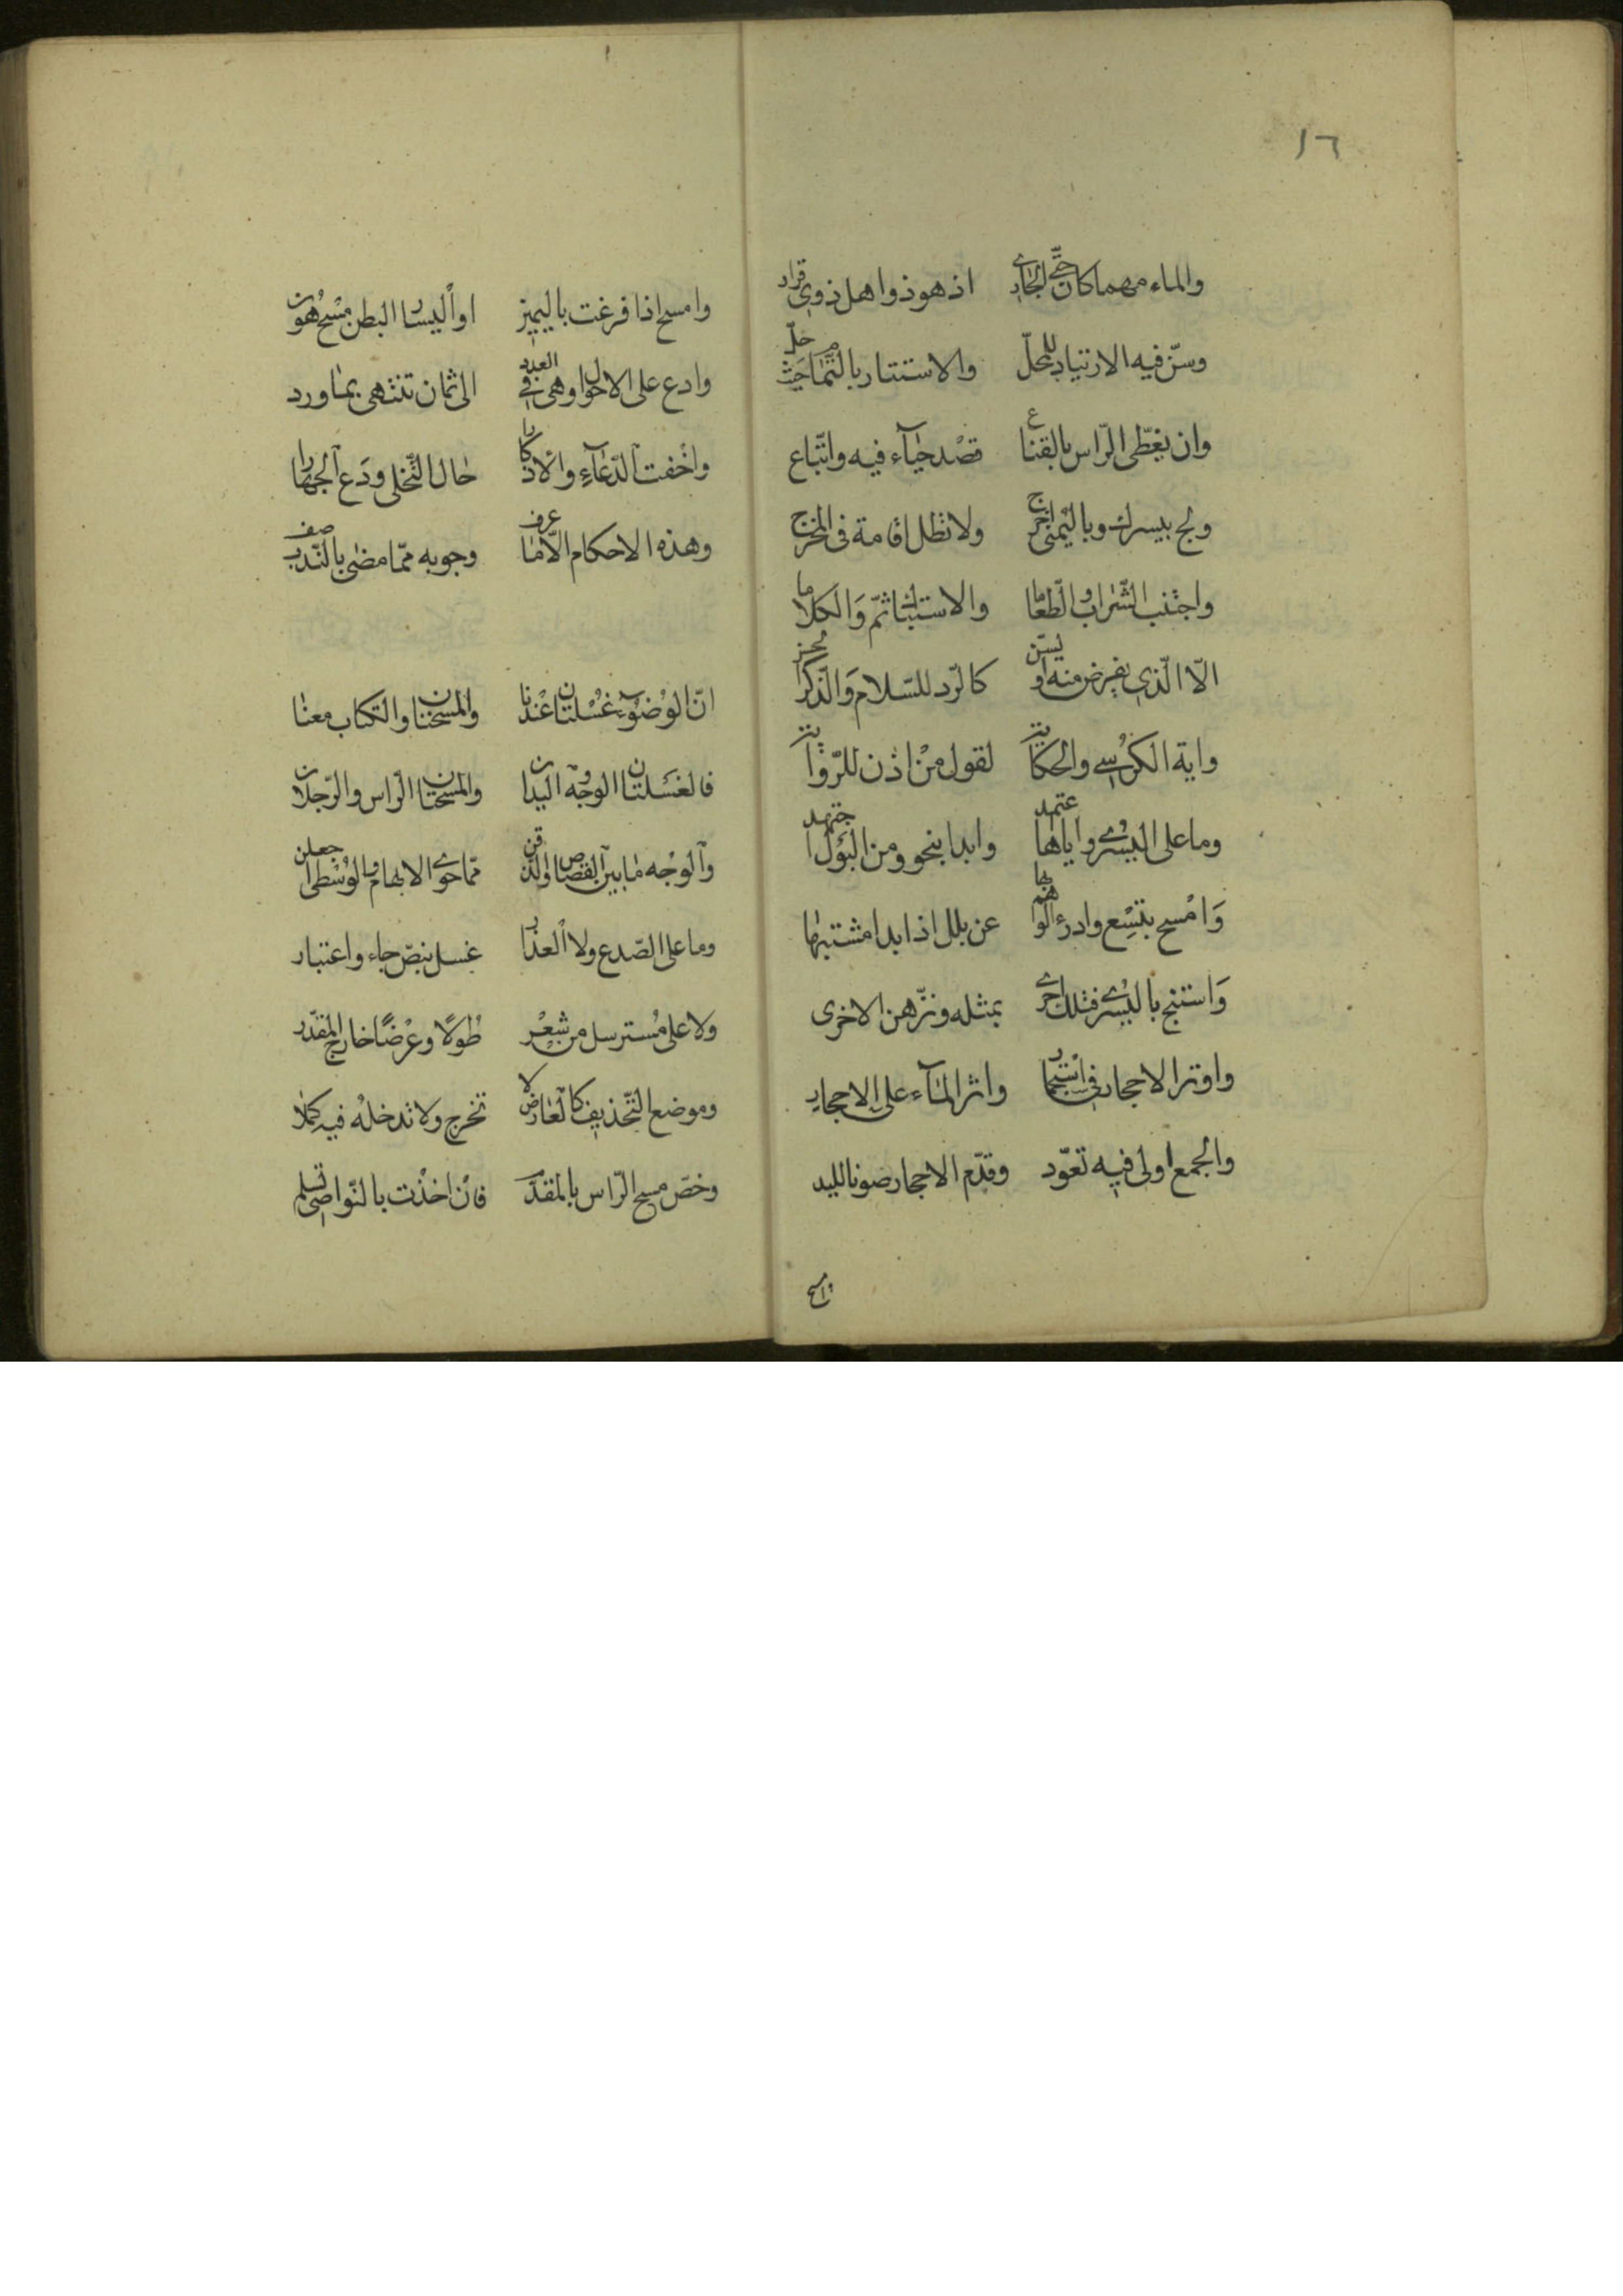 ١٦
والماء مهما كان حتّى الجاري اذ هو ذو اهل ذوي قرار
وسنّ فيه الارتياد للمحلّ والاستتار بالتّمام حيث حلّ
وان يغطّى الرّاس بالقناع قصد حياء فيه واتّباع
ولج بيسراك وباليمنى اخرج ولا تطل اقامة فى المخرج
واجتنب الشّراب والطّعاما والاستياك ثمّ والكلاما
الّا الّذي يفرض منه او يسنّ كالرّد للسّلام والذّكر
واية الكرسي والحكاية لقول من اذن للرّواية
وما على اليسرى واياها اعتمد وابدا بنحو ومن البول اجتهد
وامسح بتسع وادرء الوهم بها عن بلل اذا بدا مشتبها
واستنج باليسرى فتلك احرى بمثله ونزّهن الاخرى
واوتر الاحجار في استجمار واثر الماء على الاحجار
والجمع اولى فيه تعوّد وقدّم الاحجار صونا لليد
وامسح
وامسح اذا فرغت باليمين او اليسار البطن مسح هون
وادع على الاحوال وهي في العدد الى ثمان تنتهى بما ورد
واخفت الدّعاء والاذكارا حال التّخلى ودع الجهارا
وهذه الاحكام الّا ما عرف وجوبه ممّا مضى بالنّدب صف
انّ الوضوء غسلتان عندنا والمسحتان والكتاب معنا
فالغسلتان الوجه واليدان والمسحتان الرّاس والرّجلان
والوجه ما بين القصاص والذّقن ممّا حوى الابهام والوسطى اجعلن
وما على الصّدع ولا العذار غسل بنصّ جاء واعتبار
ولا على مسترسل من شعر طولًا وعرضًا خارج المقدّر
وموضع التّحذيف كالعارض لا تخرج ولا تدخله فيه كملا
وخصّ مسح الرّاس بالمقدّم فان اخذت بالنّواصي تسلم